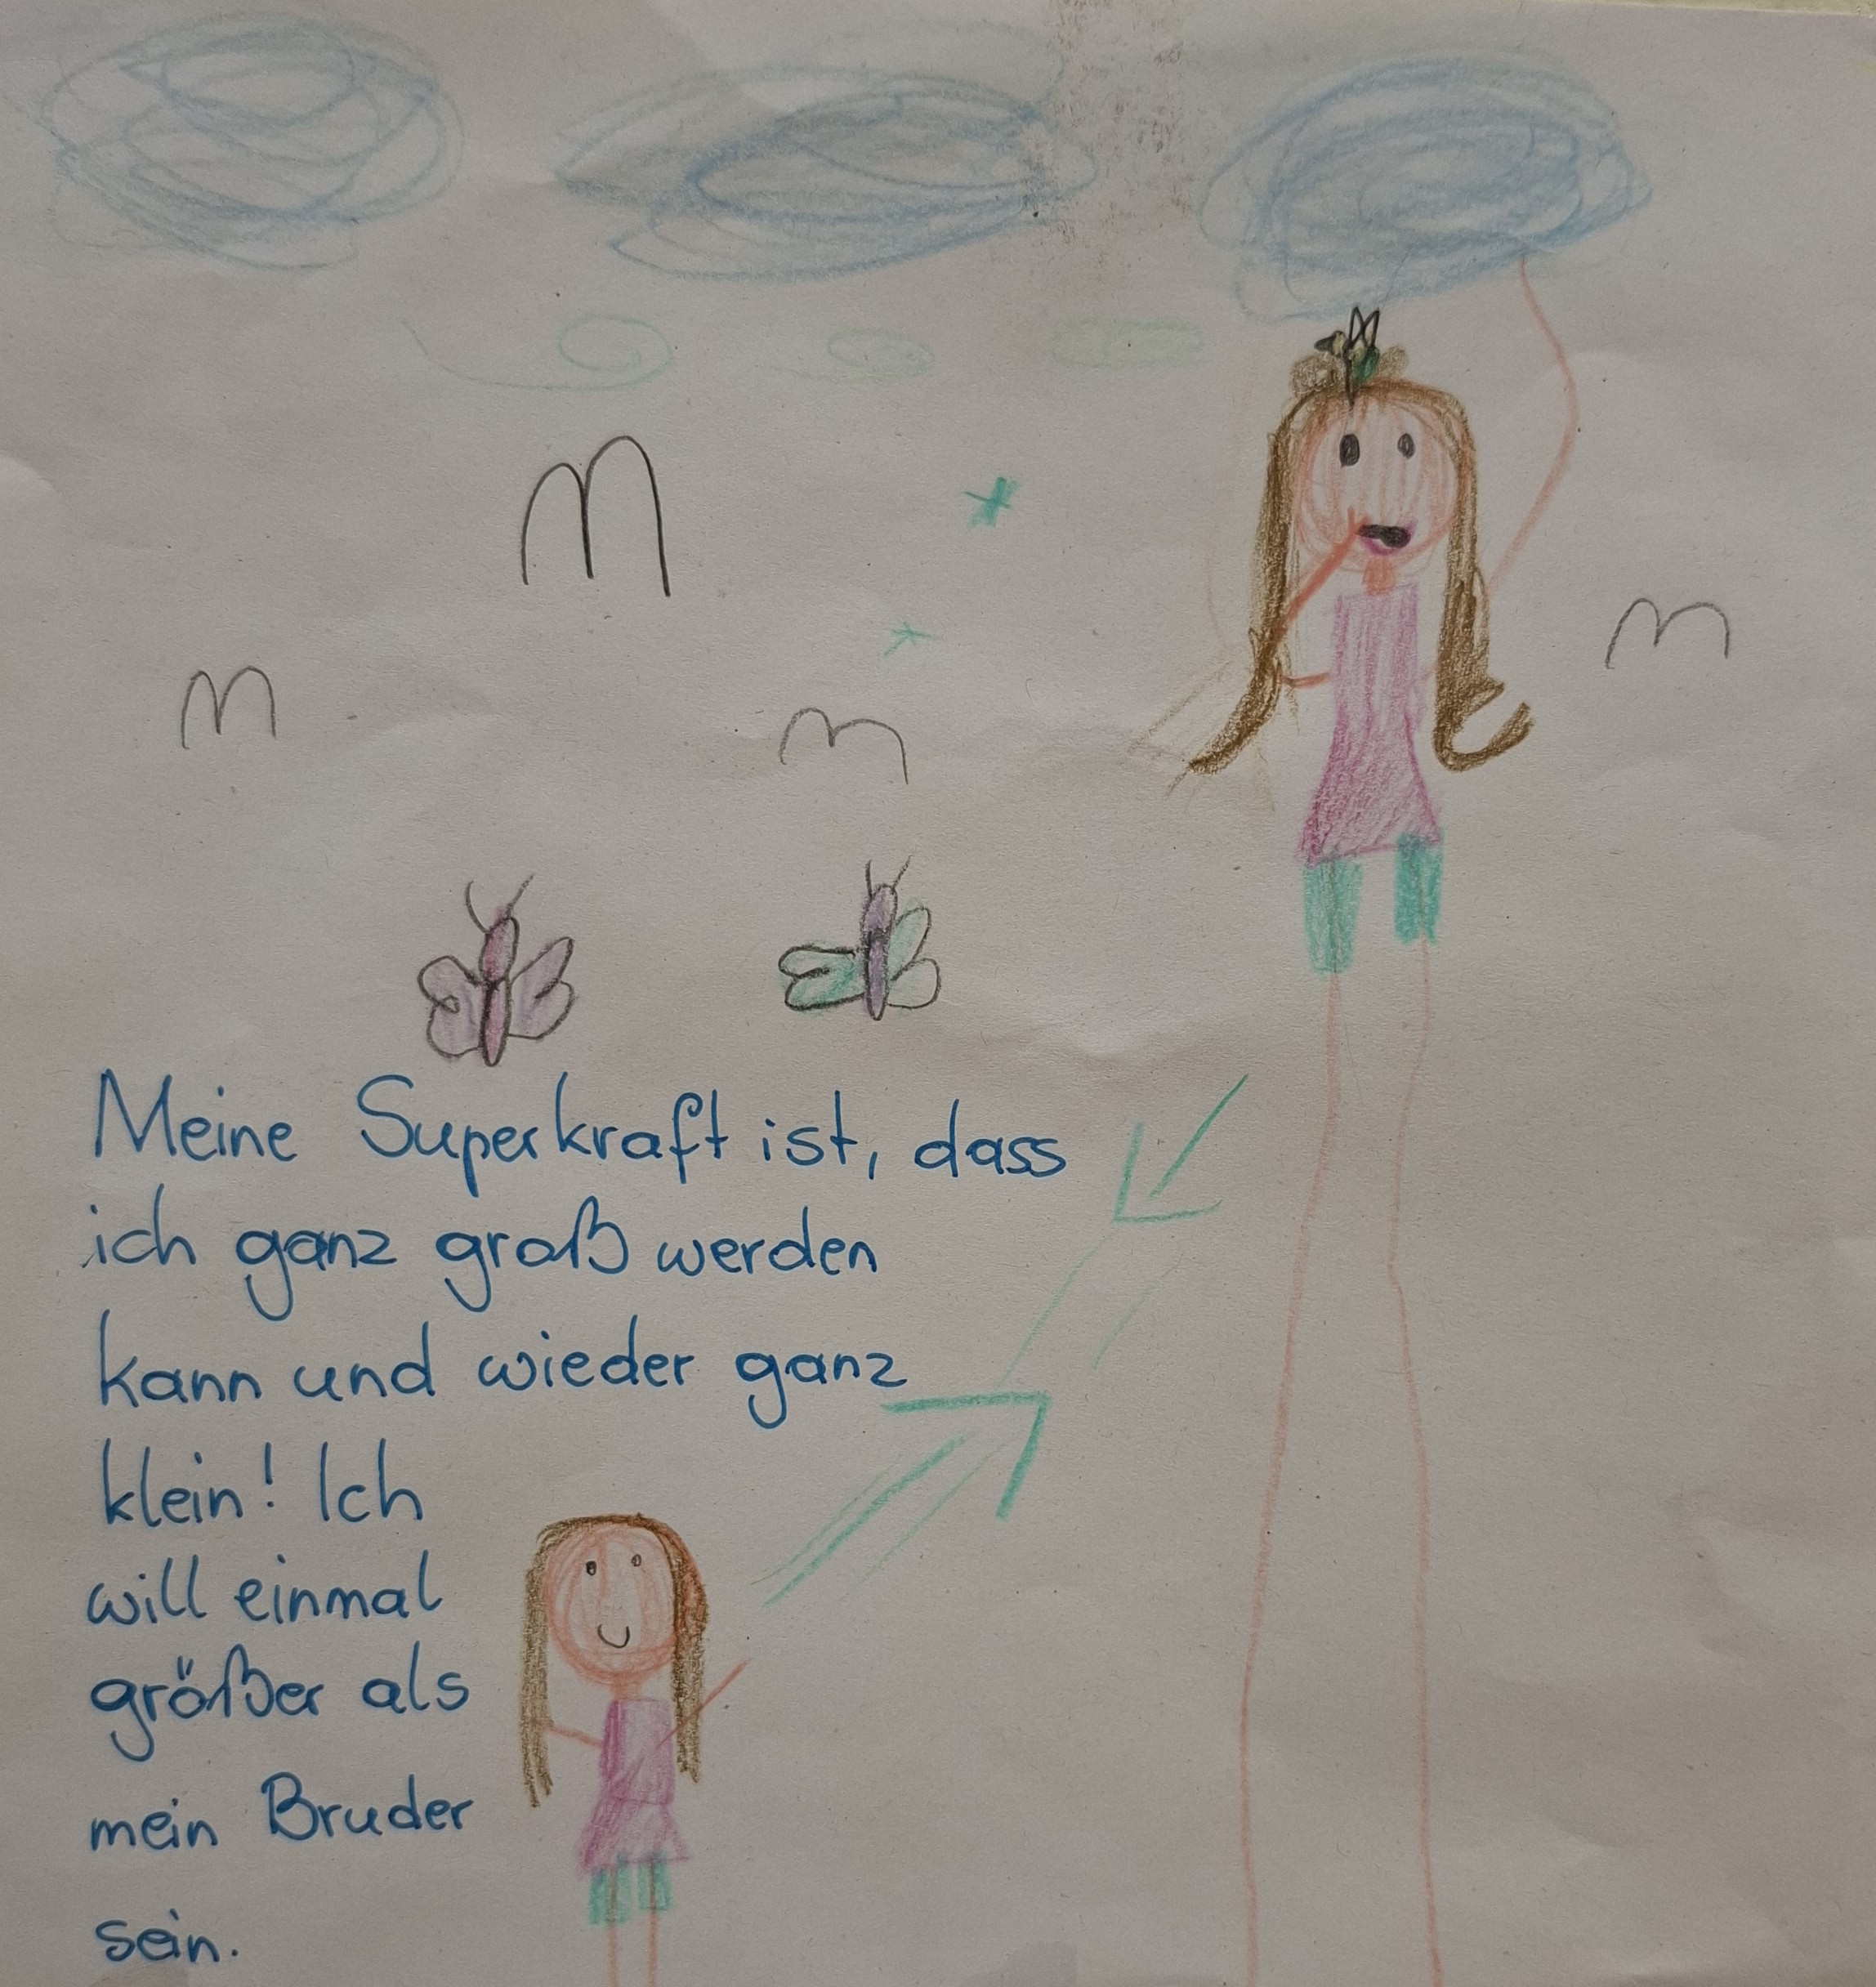 Meine Superkraft ist, dass
ich ganz groß werden
kann und wieder ganz
klein! Ich
will einmal
größer als
mein Bruder
sein.